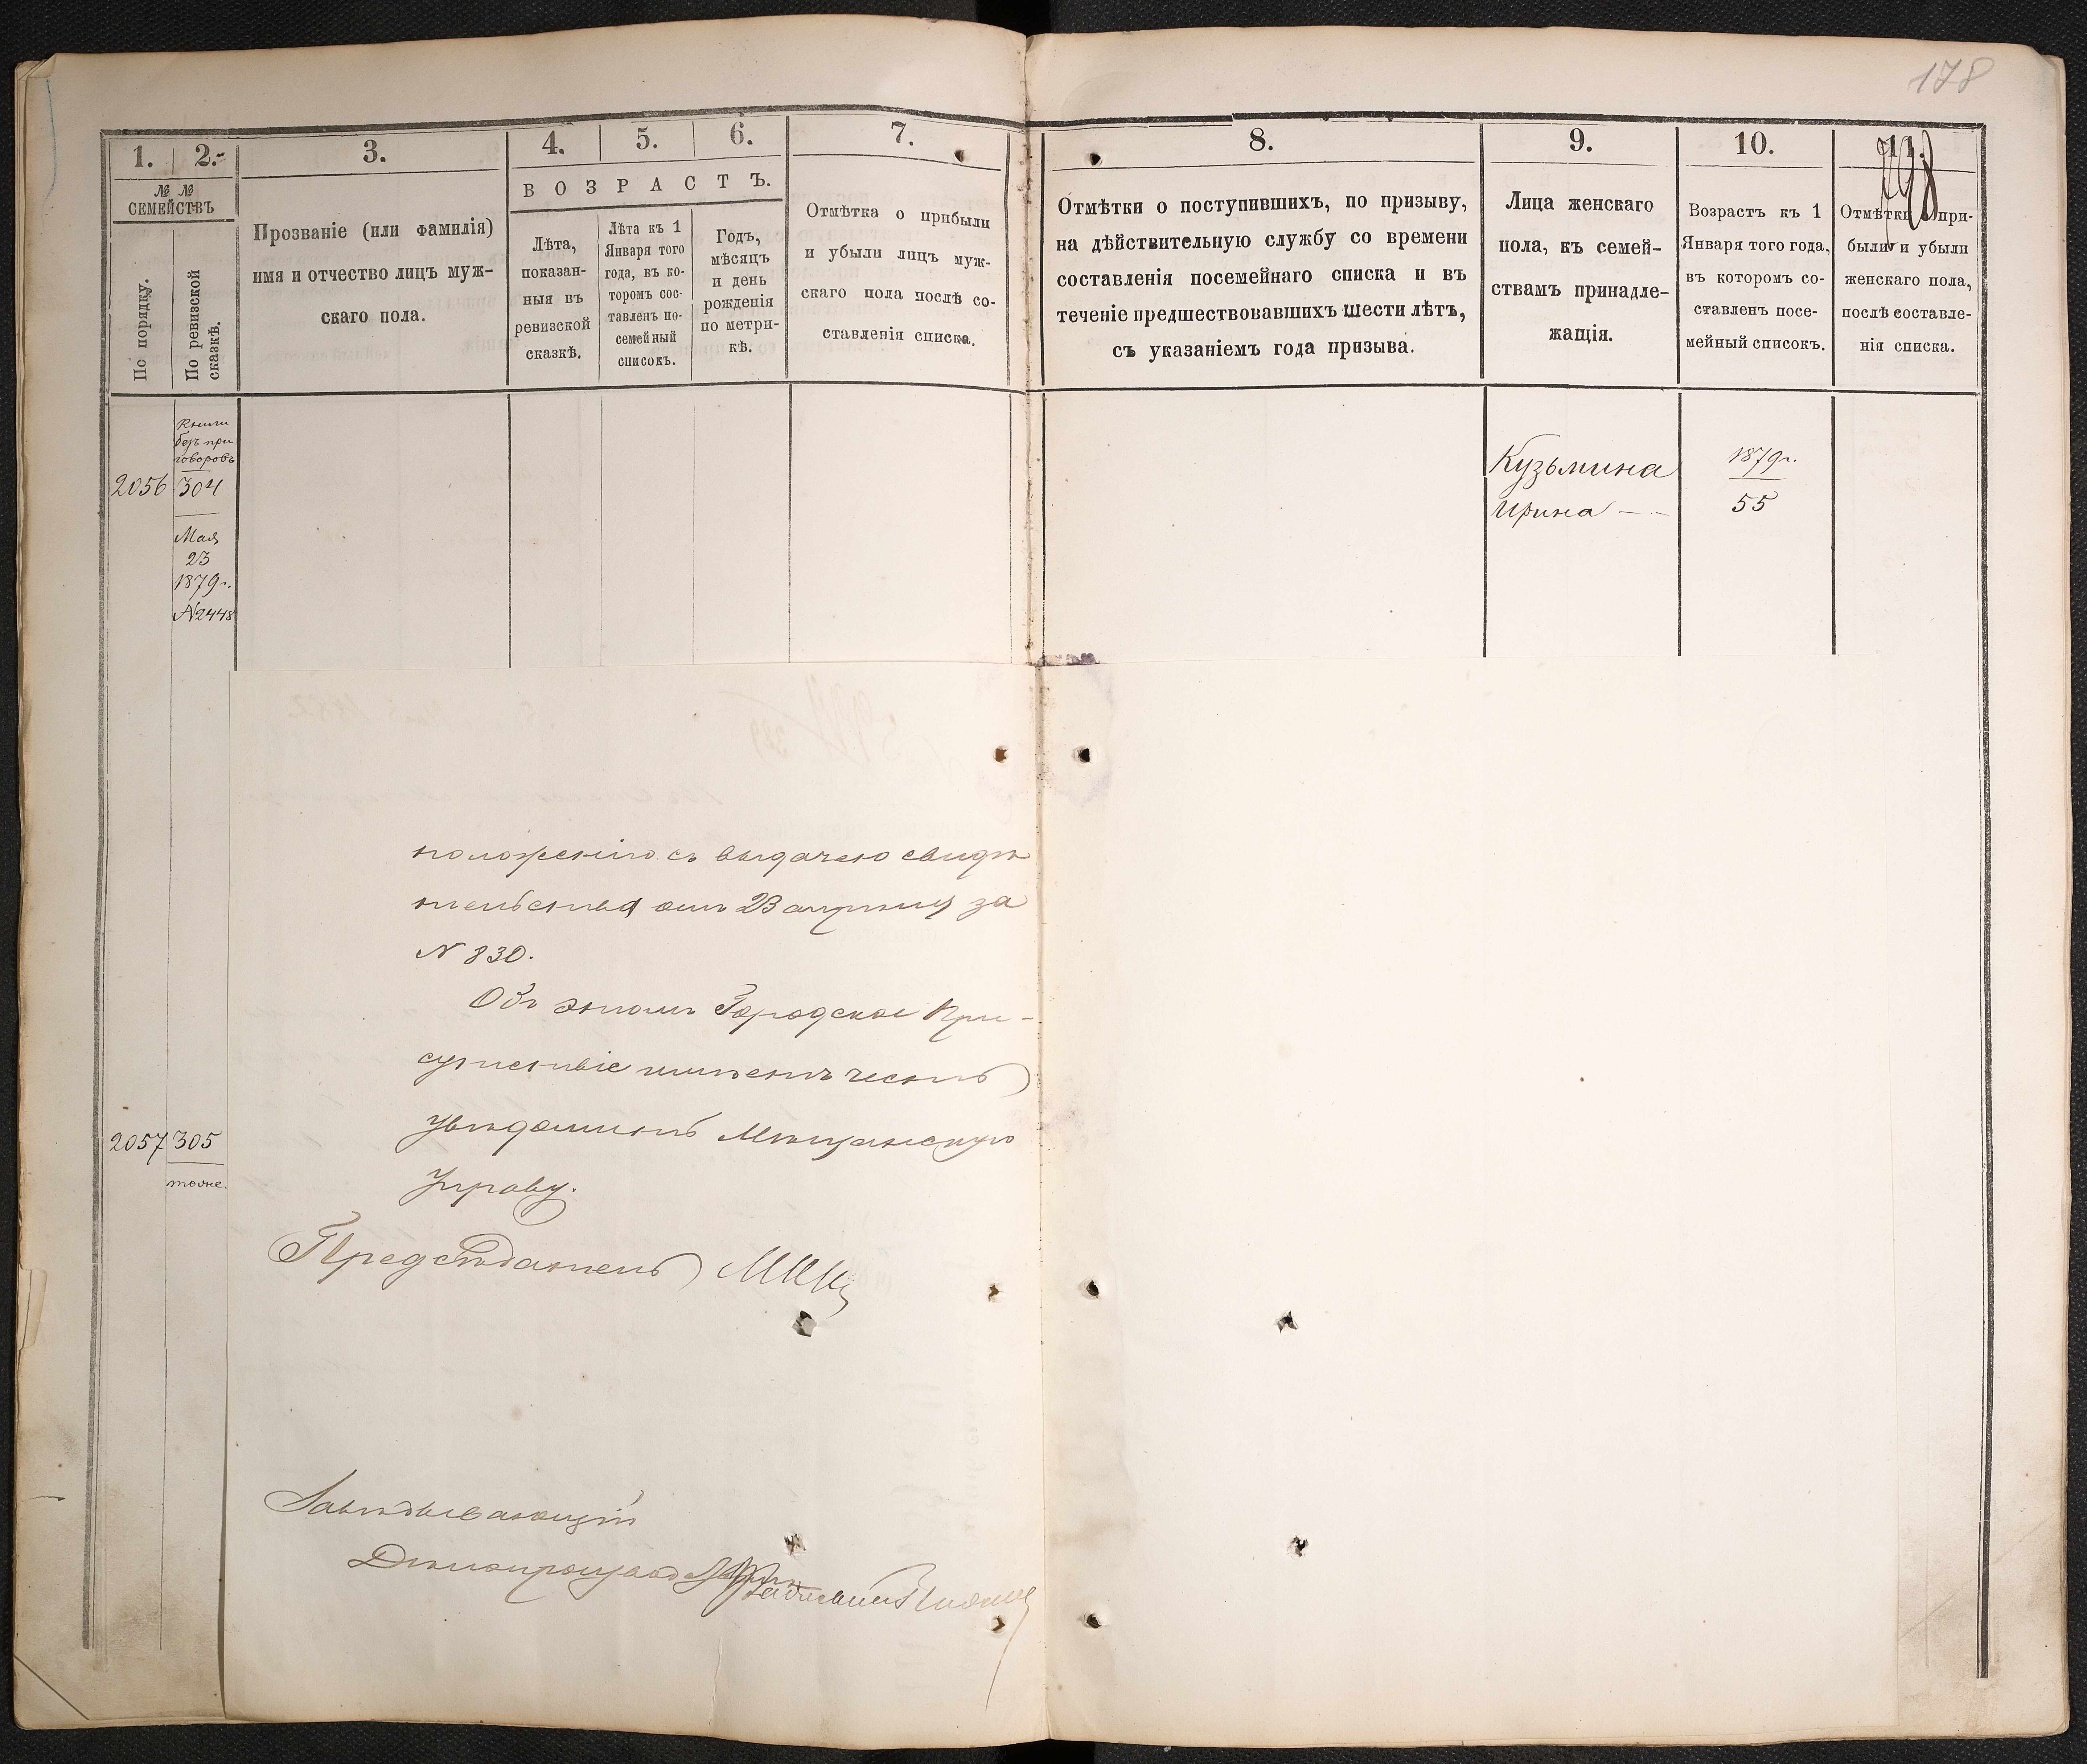 178
798
1. 2. 3. 4. 5. 6. 7. 8. 9. 10. 11.
№ №
СЕМЕЙСТВЪ
По порядку.
По ревизской
сказкѣ.
Прозваніе (или фамилія)
имя и отчество лицъ муж-
скаго пола.
ВОЗРАСТЪ.
Лѣта,
показан-
ныя въ
ревизской
сказкѣ.
Лѣта къ 1
Января того
года, въ ко-
торомъ сос-
тавленъ по-
семейный
списокъ.
Годъ,
мѣсяцъ
и день
рожденія
по метри-
кѣ.
Отмѣтка о прибыли
и убыли лицъ муж-
скаго пола послѣ со-
ставленія списка.
Отмѣтки о поступившихъ, по призыву,
на дѣйствительную службу со времени
составленія посемейнаго списка и въ
теченіе предшествовавшихъ шести лѣтъ,
съ указаніемъ года призыва.
Лица женскаго
пола, къ семей-
ствамъ принадле-
жащія.
Возрастъ къ 1
Января того года,
въ которомъ со-
ставленъ посе-
мейный списокъ.
Отмѣтки о при-
были и убыли
женскаго пола,
послѣ составле-
нія списка.
Книги
безъ при
говоровъ
2056 304
Мая
23
1879 г.
№ 2448
Кузьмина
Ирина
1879 г.
55
положенію съ выдачею свидѣ
тельства отъ 23 апрѣля за
N 830.
Объ этомъ Городское При-
сутствіе имѣетъ честь
увѣдомить Мѣщанскую
Управу.
2057 305
тоже.
Предсѣдатель
Завѣдывающій
Дѣлопроизвод